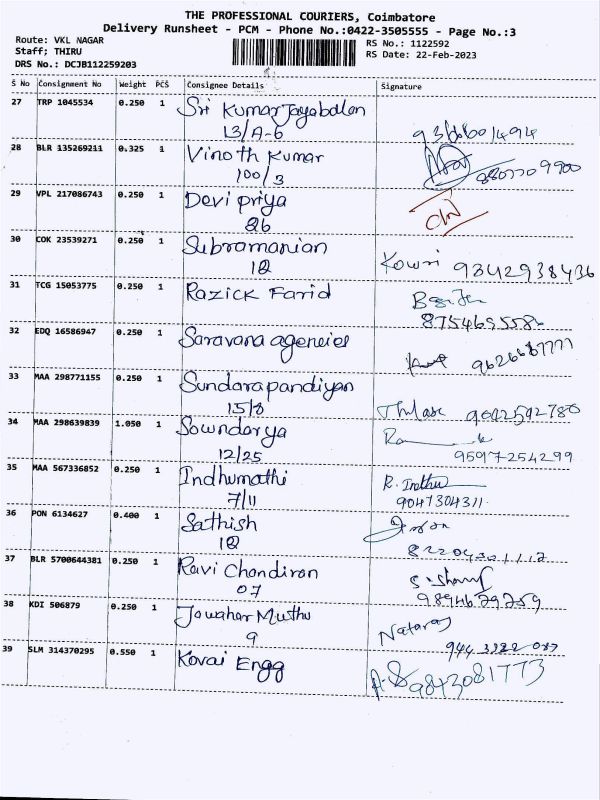 THE PROFESSIONAL COURIERS, Coimbatore
Delivery Runsheet - PCM - Phone No.:0422-3505555 - Page No.:3
Route: VKL NAGAR
RS No.: 1122592
Staff; THIRU
RS Date: 22-Feb-2023
DRS No.: DCJB112259203
S No Consignment No Weight PCS Consignee Details Signature
27 TRP 1045534 0.250 1 Sri Kumar Jayabalan
13/A-6
28 BLR 135269211 0.325 1 Vinoth Kumar
100/3 8807709900
29 VPL 217086743 0.250 1 Devi priya
26
30 COK 23539271 0.250 1 Subramanian
12 Kowri 9342938436
31 TCG 15053775 0.250 1 Razick Farid
32 EDQ 16586947 0.250 1 Saravana agencies
33 MAA 298771155 0.250 1 Sundarapandiyan
15/8 9042592780
34 MAA 298639839 1.050 1 Sowndarya
12/25 9597254299
35 MAA 567336852 0.250 1 Indhumathi R. Indhu
7/11 9047304311
36 PON 6134627 0.400 1 Sathish
12
37 BLR 5700644381 0.250 1 Ravi Chandiran
07 9894679259
38 KDI 506879 0.250 1 Jawahar Muthu
9 Nataraj
39 SLM 314370295 0.550 1 Kovai Engg 9843081773